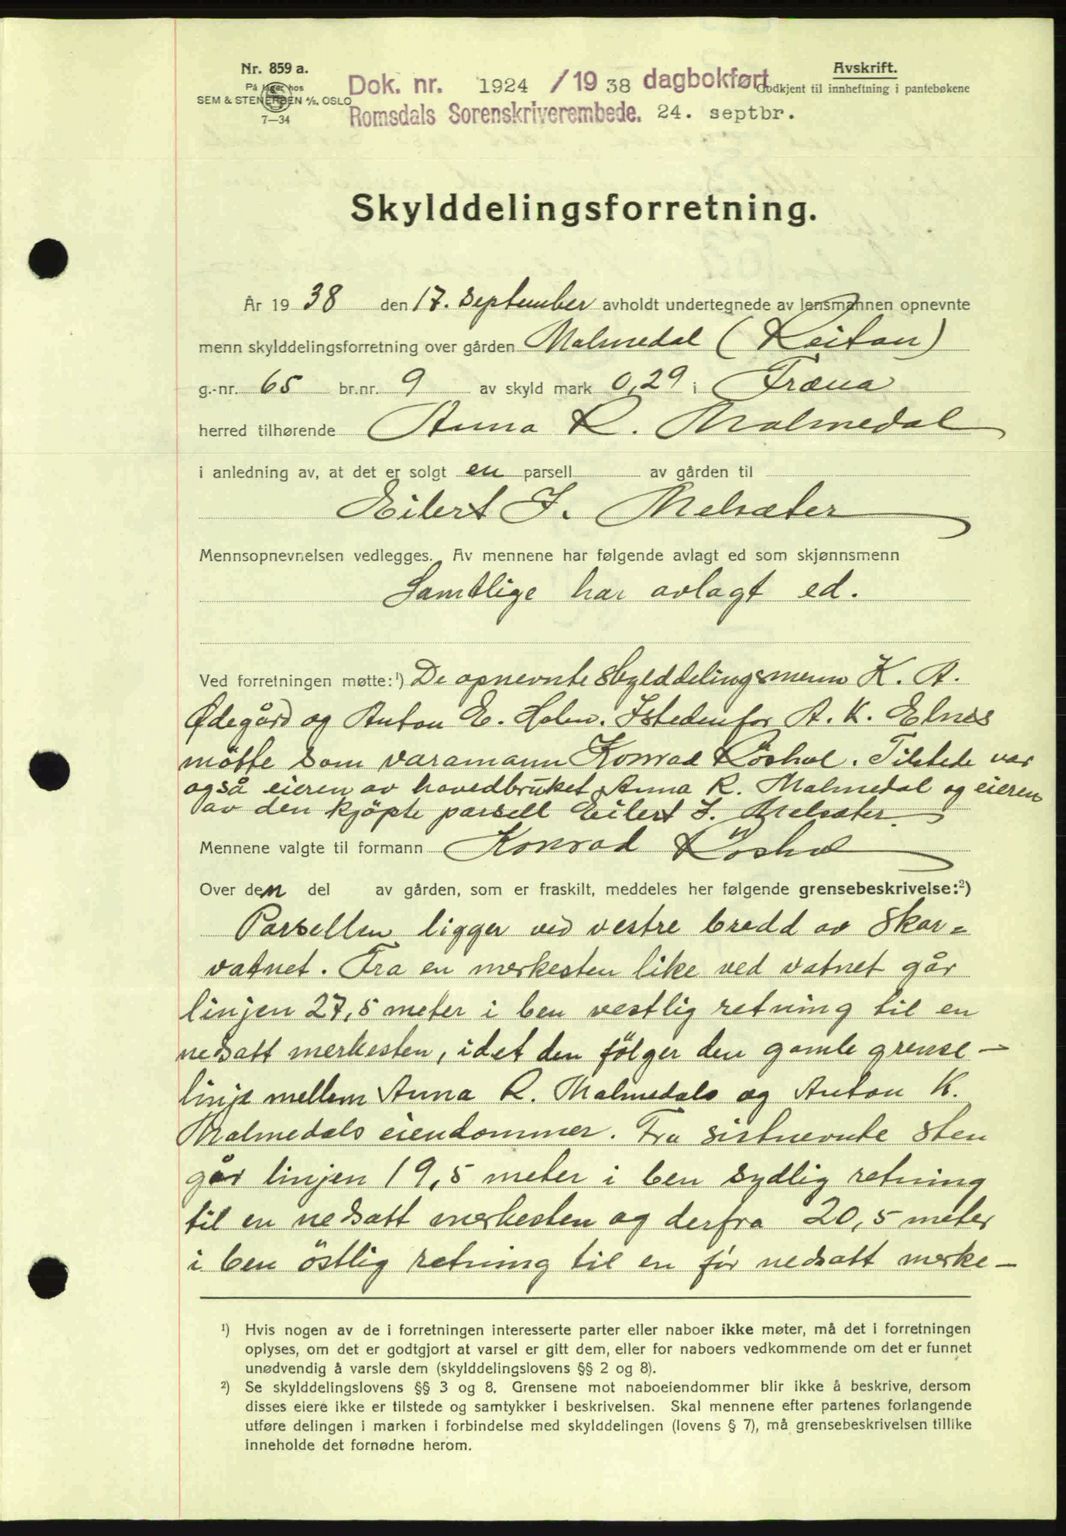 Nr. 859 a.
På lager hos
SEM & STENERSEN A/S, OSLO
7—34
Dok. nr. 1924 /19 38 dagbokført
Romsdals Sorenskriverembede. 24. septbr.
Avskrift.
Godkjent til innheftning i pantebøkene
Skylddelingsforretning.
År 19 38 den 17. September avholdt undertegnede av lensmannen opnevnte
menn skylddelingsforretning over gården Malmedal (Reitan)
g.-nr. 65 br.nr. 9 av skyld mark 0,29 i Fræna
herred tilhørende Anna R. Malmedal
i anledning av, at det er solgt en parsell av gården til
Eilert J. Melsæter
Mennsopnevnelsen vedlegges. Av mennene har følgende avlagt ed som skjønnsmenn
Samtlige har avlagt ed.
Ved forretningen møtte:¹) De opnevnte skylddelingsmenn K. A.
Ødegård og Anton E. Holen. Istedenfor A. K. Elnes
møtte som varamann Konrad Röshol. Tilstede var
også eieren av hovedbruket Anna R. Malmedal og eieren
av den kjöpte parsell Eilert J. Melsæter.
Mennene valgte til formann Konrad Röshol
Over den del av gården, som er fraskilt, meddeles her følgende grensebeskrivelse:²)
Parsellen ligger ved vestre bredd av Skar=
vatnet. Fra en merkesten like ved vatnet går
linjen 27,5 meter i ben vestlig retning til en
nedsatt merkesten, idet den fölger den gamle grense-
linje mellem Anna R. Malmedals og Anton K.
Malmedals eiendommer. Fra sistnevnte sten
går linjen 19,5 meter i ben sydlig retning
til en nedsatt merkesten og derfra 20,5 meter
i ben östlig retning til en før nedsatt merke-
¹) Hvis nogen av de i forretningen interesserte parter eller naboer ikke møter, må det i forretningen
oplyses, om det er godtgjort at varsel er gitt dem, eller for naboers vedkommende om det er funnet
unødvendig å varsle dem (skylddelingslovens §§ 2 og 8).
²) Se skylddelingslovens §§ 3 og 8. Grensene mot naboeiendommer blir ikke å beskrive, dersom
disses eiere ikke er tilstede og samtykker i beskrivelsen. Skal mennene efter partenes forlangende
utføre delingen i marken i forbindelse med skylddelingen (lovens § 7), må grensebeskrivelsen tillike
inneholde det fornødne herom.